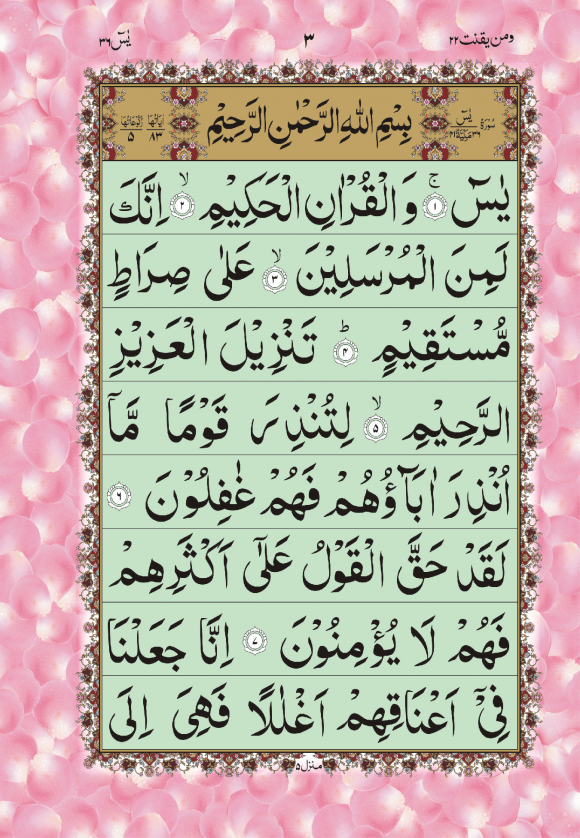 ومن یقنت ۲۲ ۳ یٰسٓ ۳۶
سُوْرَةُ یٰسٓ ۳۶ مَکِّیَّةٌ ۴۱ بِسْمِ اللهِ الرَّحْمٰنِ الرَّحِيْمِ اٰیَاتُهَا ۸۳ رُکُوْعَاتُهَا ۵
يٰسٓ ۚ‏﴿۱﴾ وَ الْقُرْاٰنِ الْحَكِيْمِ ۙ‏﴿۲﴾ اِنَّكَ
لَمِنَ الْمُرْسَلِيْنَ ۙ‏﴿۳﴾ عَلٰى صِرَاطٍ
مُّسْتَقِيْمٍ ؕ‏﴿۴﴾ تَنْزِيْلَ الْعَزِيْزِ
الرَّحِيْمِ ۙ‏﴿۵﴾ لِتُنْذِرَ قَوْمًا مَّاۤ
اُنْذِرَ اٰبَآؤُهُمْ فَهُمْ غٰفِلُوْنَ ﴿۶﴾
لَقَدْ حَقَّ الْقَوْلُ عَلٰٓى اَكْثَرِهِمْ
فَهُمْ لَا يُؤْمِنُوْنَ ﴿۷﴾ اِنَّا جَعَلْنَا
فِيْۤ اَعْنَاقِهِمْ اَغْلٰلًا فَهِىَ اِلَى
منزل ۵